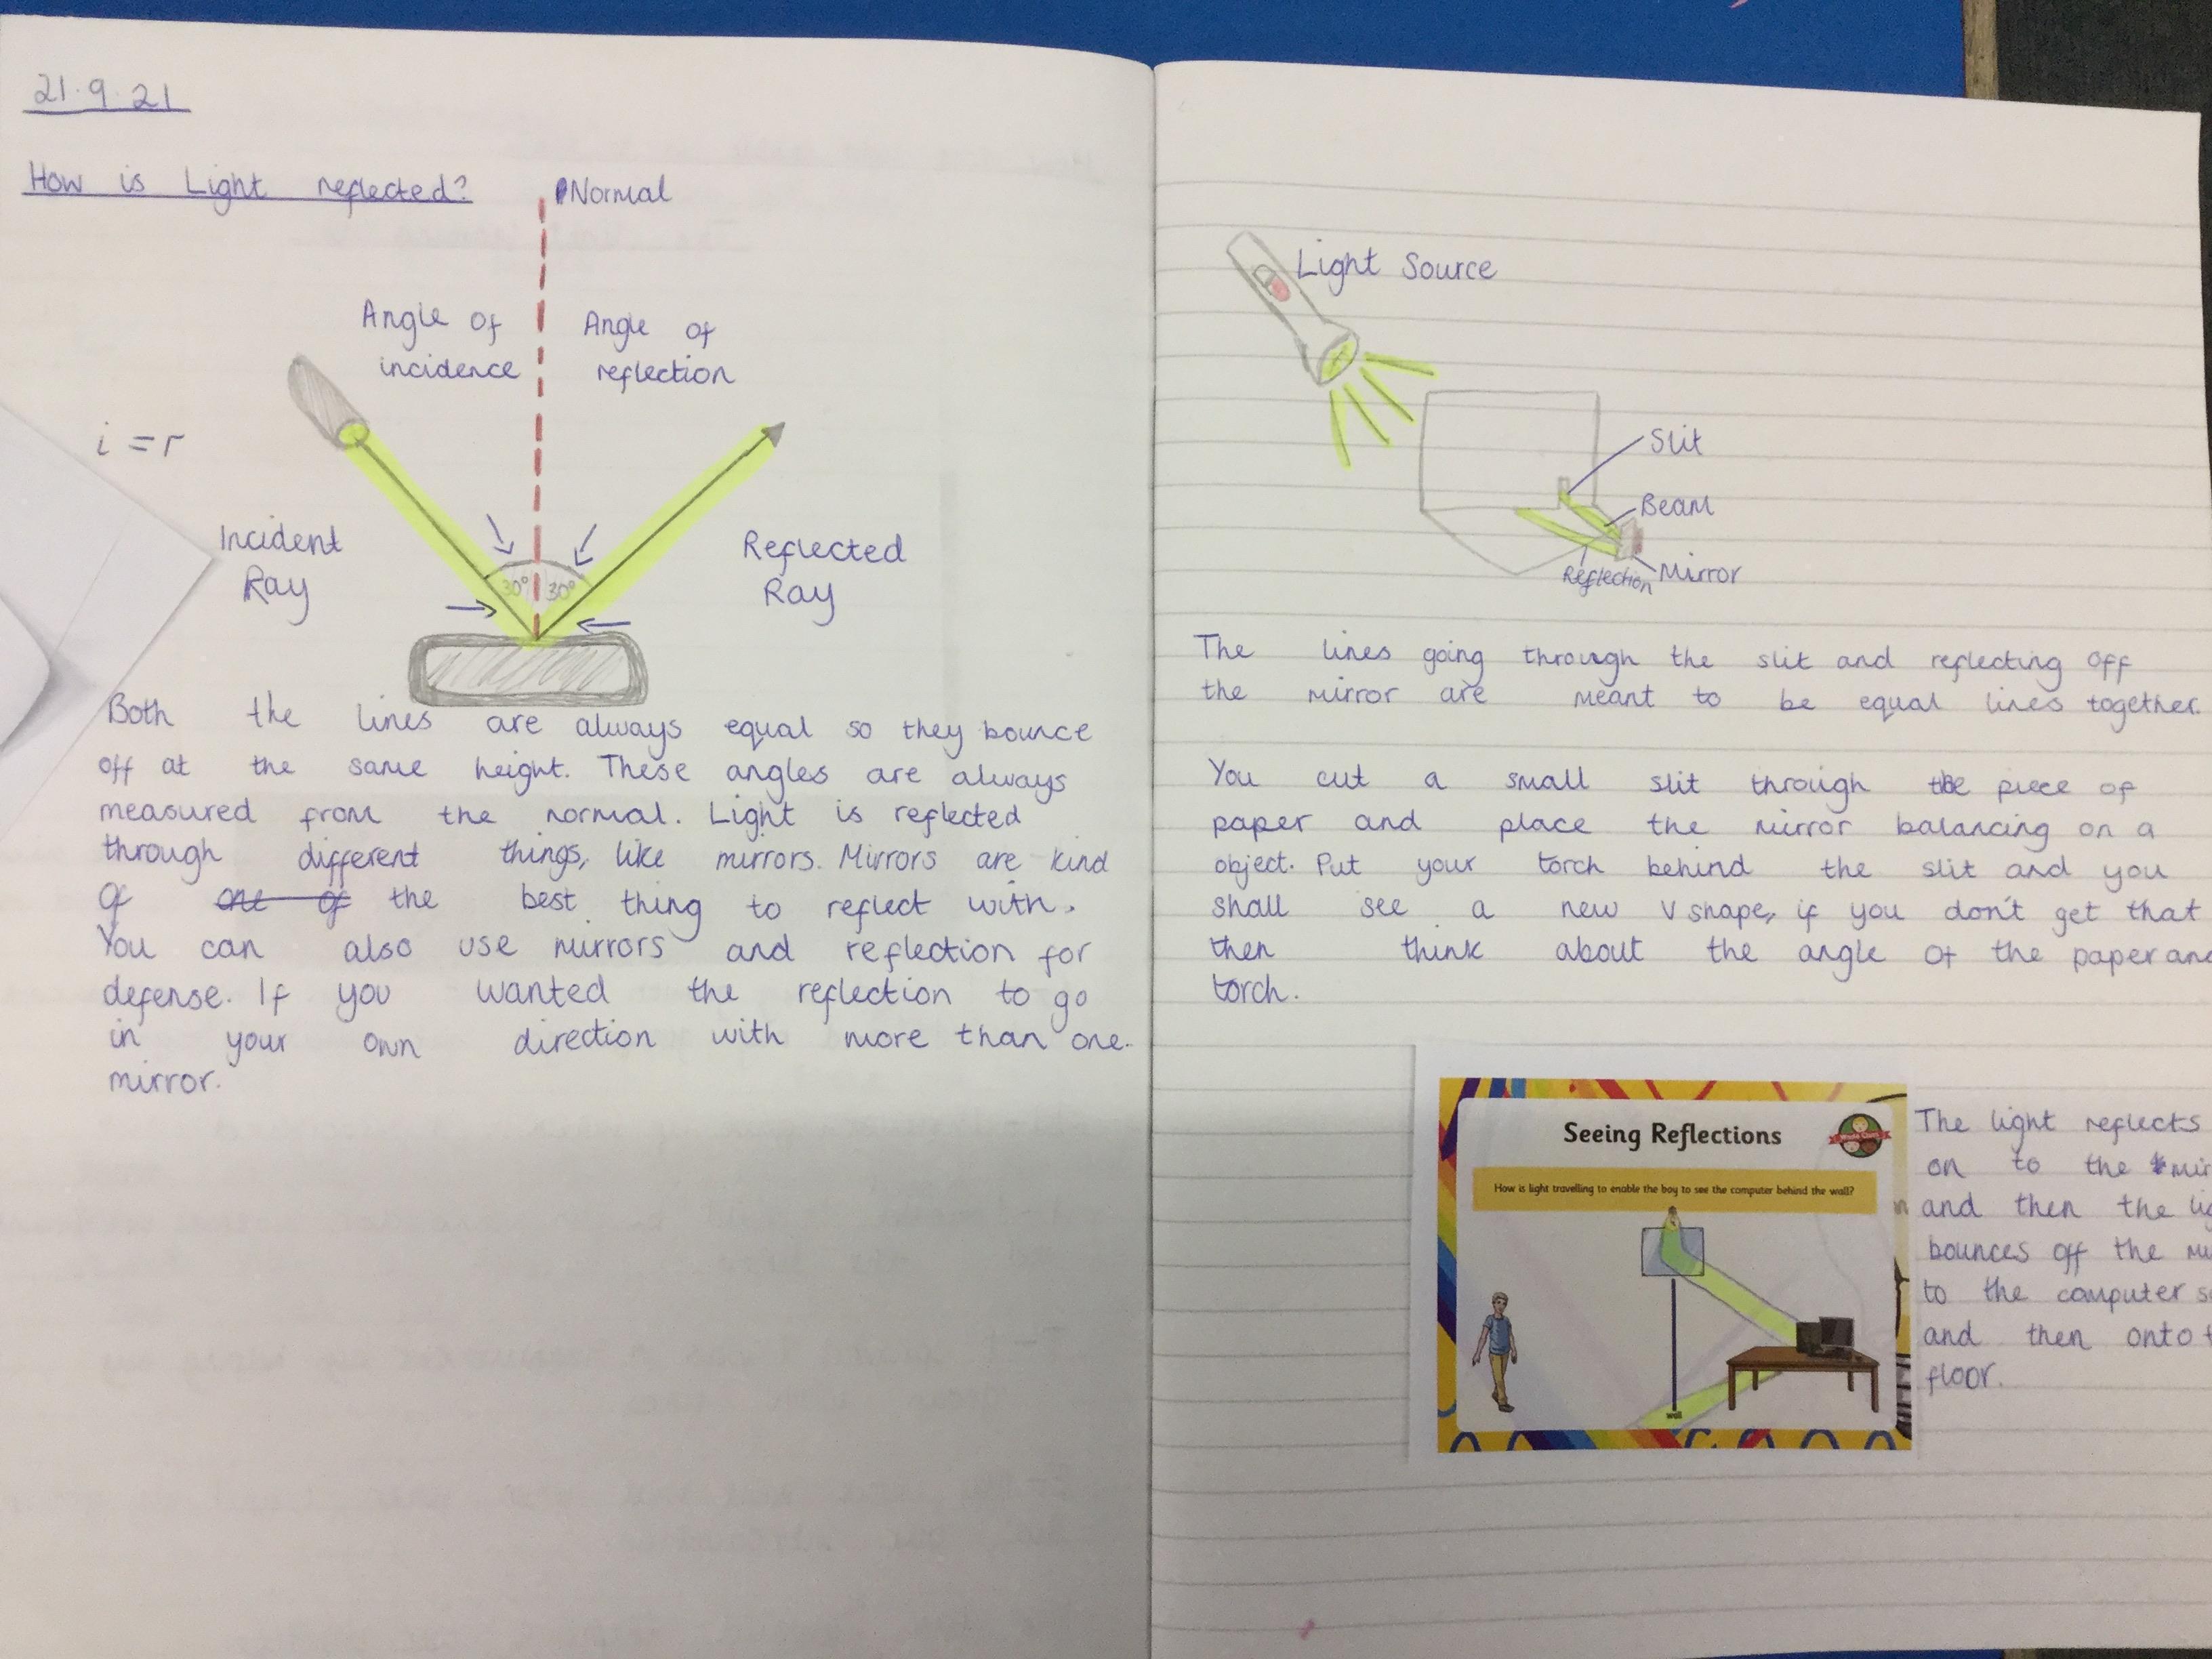 21.9.21
How is Light reflected?
Normal
Angle of
incidence
Angle of
reflection
i = r
Incident
Ray
30°
30°
Reflected
Ray
Both the lines are always equal so they bounce
off at the same height. These angles are always
measured from the normal. Light is reflected
through different things, like mirrors. Mirrors are kind
of one of the best thing to reflect with.
You can also use mirrors and reflection for
defense. If you wanted the reflection to go
in your own direction with more than one.
mirror.
Light Source
Slit
Beam
Reflection
Mirror
The lines going through the slit and reflecting off
the mirror are meant to be equal lines together.
You cut a small slit through the piece of
paper and place the mirror balancing on a
object. Put your torch behind the slit and you
shall see a new V shape, if you don't get that
then think about the angle of the paper and
torch.
Seeing Reflections
How is light travelling to enable the boy to see the computer behind the wall?
wall
The light reflects
on to the mir
and then the lig
bounces off the
to the computer
and then onto
floor.